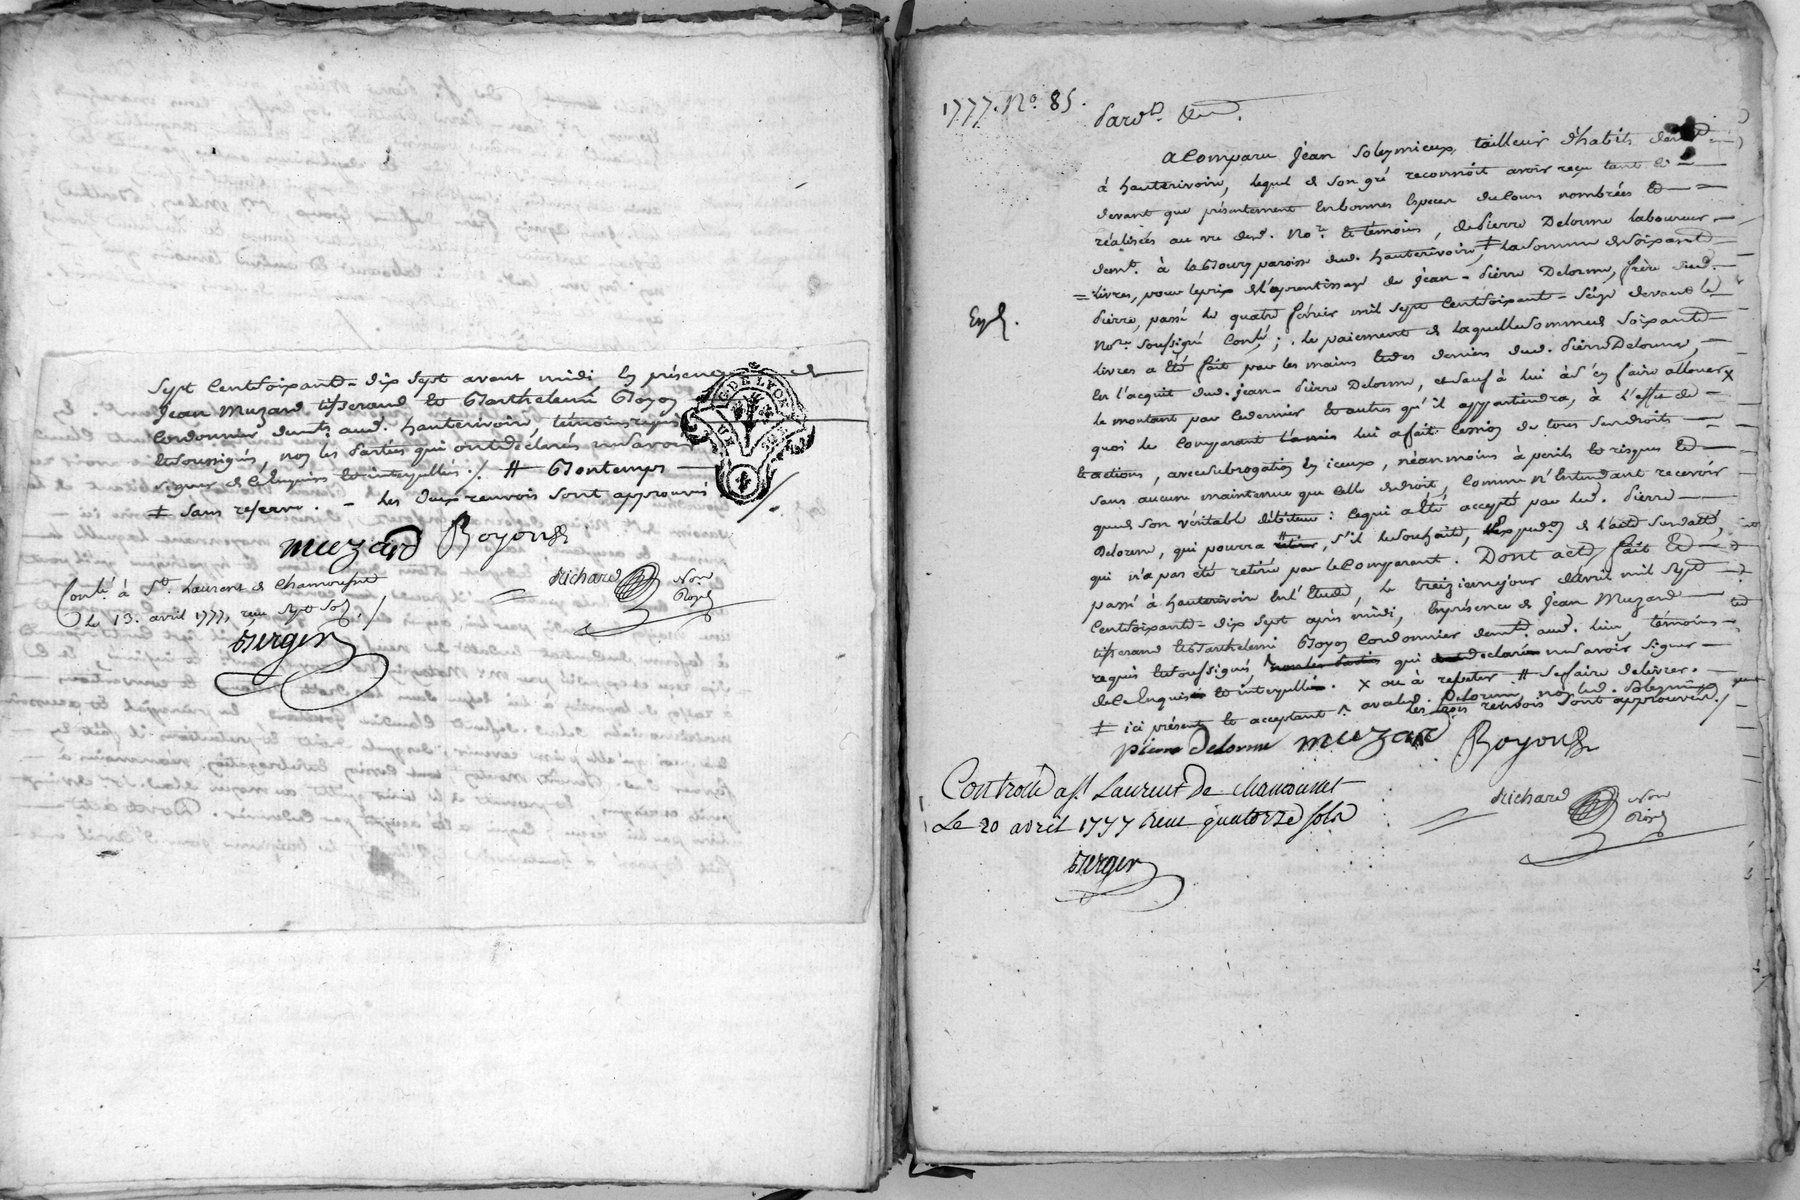 Sept Cent Soixante-dix sept avant midi En présence de
Jean Muzard tisserand et Barthelemi Boyon
Cordonnier demts. aud. hauterivoire, témoins requis
et soussignés, non les Parties qui ont déclarés ne savoir
signer de ce Enquises et interpellées ./. # Bontemps
‡ sans reserve. - les deux renvois sont approuvés ./
muzard Boyon
Richard Nore Royal
Conlé à St. Laurent de Chamousset
Le 13. avril 1777, reçu sept sols ./
Berger
G. DE LYON
1777. No. 85.
Pardt. &a.
a Comparu Jean Soleymieux, tailleur d'habits demt
à hauterivoire, lequel de son gré reconnoit avoir reçu tant ci
devant que présentement En bonnes Especes du Cours nombrées et
réalisées au vu dud. Nore. et témoins, de Pierre Delorme laboureur
demt. à la Bourg paroisse dud. hauterivoire, ‡ la Somme de Soixante
= livres, pour le prix de l'aprentissage de Jean-Pierre Delorme, frère dud.
Pierre, passé le quatre février mil sept Cent Soixante-Seize devant le
Nore. soussigné Conlé; . le paiement de laquelle Somme de Soixante
Exp.
livres a été fait par les mains et des deniers dud. Pierre Delorme,
En l'acquit dud. Jean-Pierre Delorme, et sauf à lui à s'en faire allouer x
le montant par ce dernier et autres qu'il appartiendra, à l'effet de
quoi le Comparant lui a fait Cession de tous ses droits
et actions, avec subrogation En iceux, néanmoins à perils et risques et
sans aucune maintenue que Celle de droit, Comme n'Entendant recevoir
que de son véritable débiteur: Ce qui a été accepté par led. Pierre
Delorme, qui pourra #, s'il le souhaite, Expedon de l'acte Susdatté,
qui n'a pas été retirée par le Comparant. Dont acte, fait et
passé à hauterivoire En l'Etude, le treizieme jour d'avril mil Sept
Cent Soixante-dix sept après midi, En présence de Jean Muzard
tisserand et Barthelemi Boyon Cordonnier demts. aud. lieu, témoins
requis et soussignés, qui déclaré ne savoir signer
de ce Enquis et interpellé. x ou à repeter # se faire delivrer.
‡ ici présent et acceptant ^ avec led. Delorme, non led. Soleymieux
les trois renvois sont approuvés ./
pierre Delorme muzard Boyon
Richard Nore Royal
Controllé a St Laurent de Chamousset
Le 20 avril 1777 Reçu quatorze sols
Berger